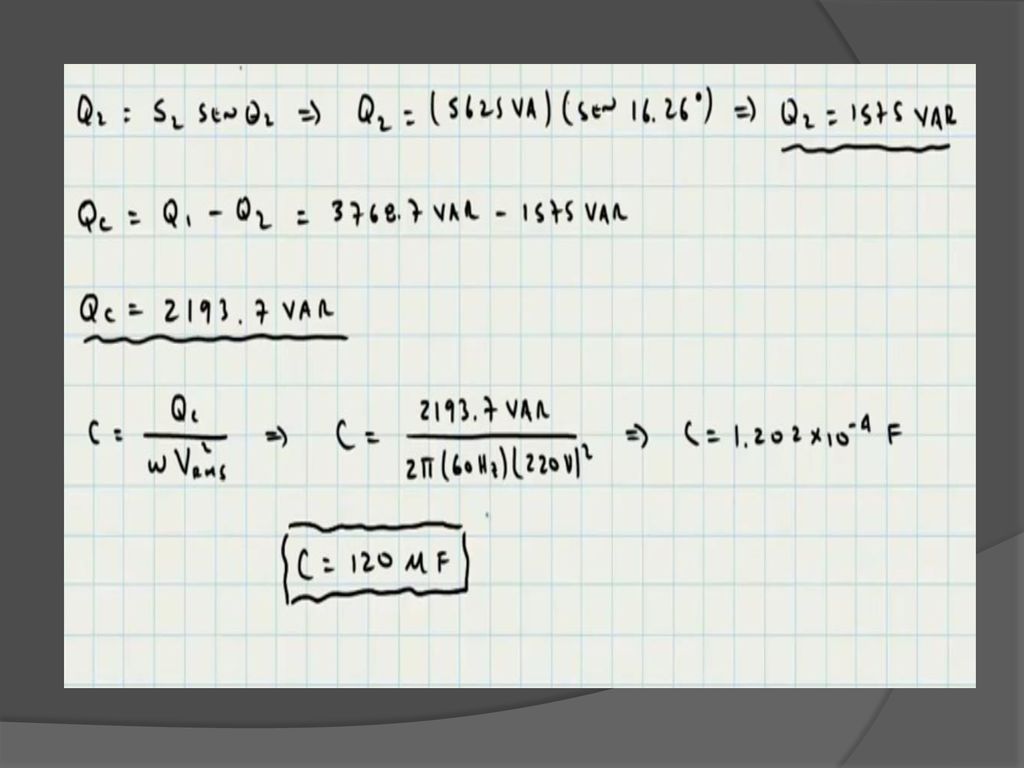 Q2 = S2 sen θ2 => Q2 = (5625 VA) (sen 16.26°) => Q2 = 1575 VAR
Qc = Q1 - Q2 = 3768.7 VAR - 1575 VAR
Qc = 2193.7 VAR
C = Qc / ω V²RMS => C = 2193.7 VAR / 2π(60 Hz)(220 V)² => C = 1.202 x 10⁻⁴ F
C = 120 μF